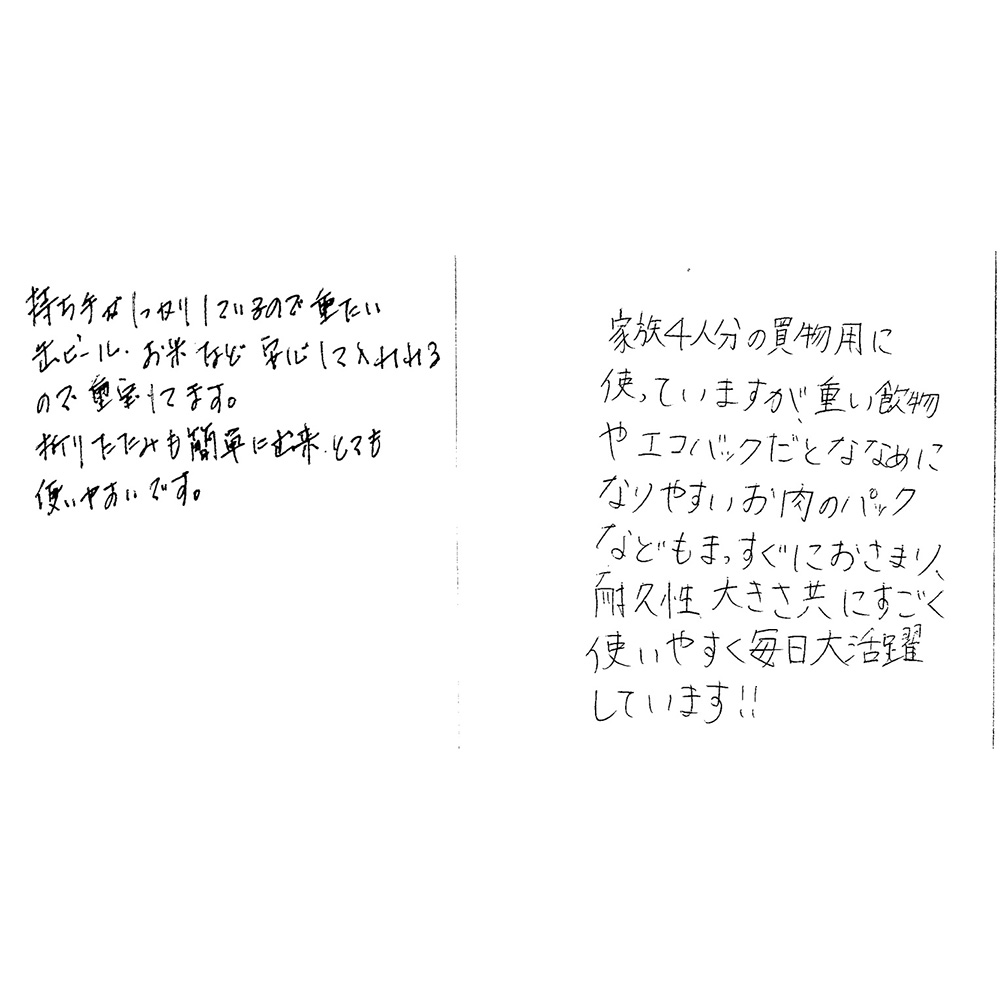 持ち手がしっかりしているので重たい
缶ビール.お米など安心して入れれる
ので重宝してます。
折りたたみも簡単に出来.とても
使いやすいです。
家族4人分の買物用に
使っていますが、重い飲物
やエコバックだとななめに
なりやすいお肉のパック
などもまっすぐにおさまり、
耐久性 大きさ共にすごく
使いやすく毎日大活躍
しています!!